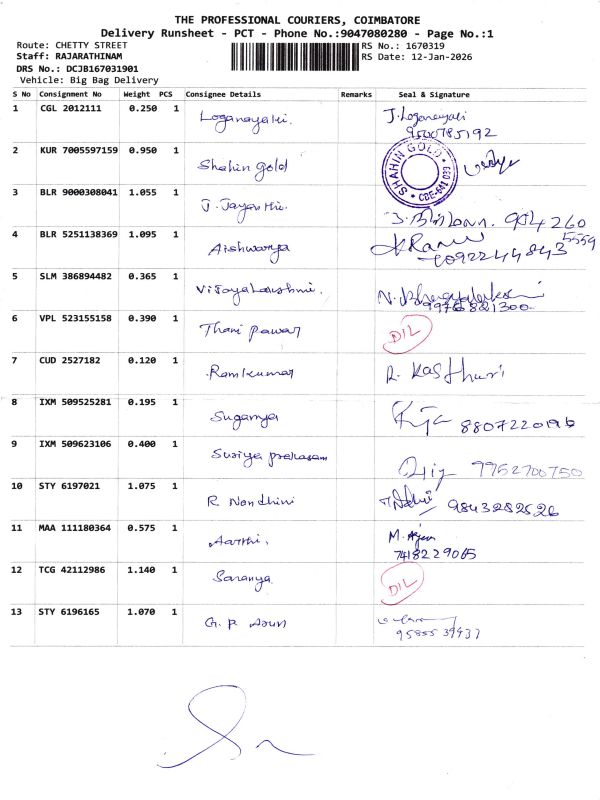 THE PROFESSIONAL COURIERS, COIMBATORE
Delivery Runsheet - PCT - Phone No.:9047080280 - Page No.:1
Route: CHETTY STREET
RS No.: 1670319
Staff: RAJARATHINAM
RS Date: 12-Jan-2026
DRS No.: DCJB167031901
Vehicle: Big Bag Delivery
S No Consignment No Weight PCS Consignee Details Remarks Seal & Signature
1 CGL 2012111 0.250 1 Loganayaki. J. Loganayaki
9500785192
2 KUR 7005597159 0.950 1 Shahin Gold SHAHIN GOLD CBE-641 033
3 BLR 9000308041 1.055 1 J. Jayanthi. 904 260
5559
4 BLR 5251138369 1.095 1 Aishwarya
9092244843
5 SLM 386894482 0.365 1 Vijayalakshmi.
9976821300
6 VPL 523155158 0.390 1 Thani pawar DIL
7 CUD 2527182 0.120 1 Ramkumar R. Kasthuri
8 IXM 509525281 0.195 1 Suganya 8807220196
9 IXM 509623106 0.400 1 Suriya prakasam 9952700750
10 STY 6197021 1.075 1 R Nandhini 9843282526
11 MAA 111180364 0.575 1 Aarthi. M.
7418229065
12 TCG 42112986 1.140 1 Saranya DIL
13 STY 6196165 1.070 1 G. P Arun
9585539437